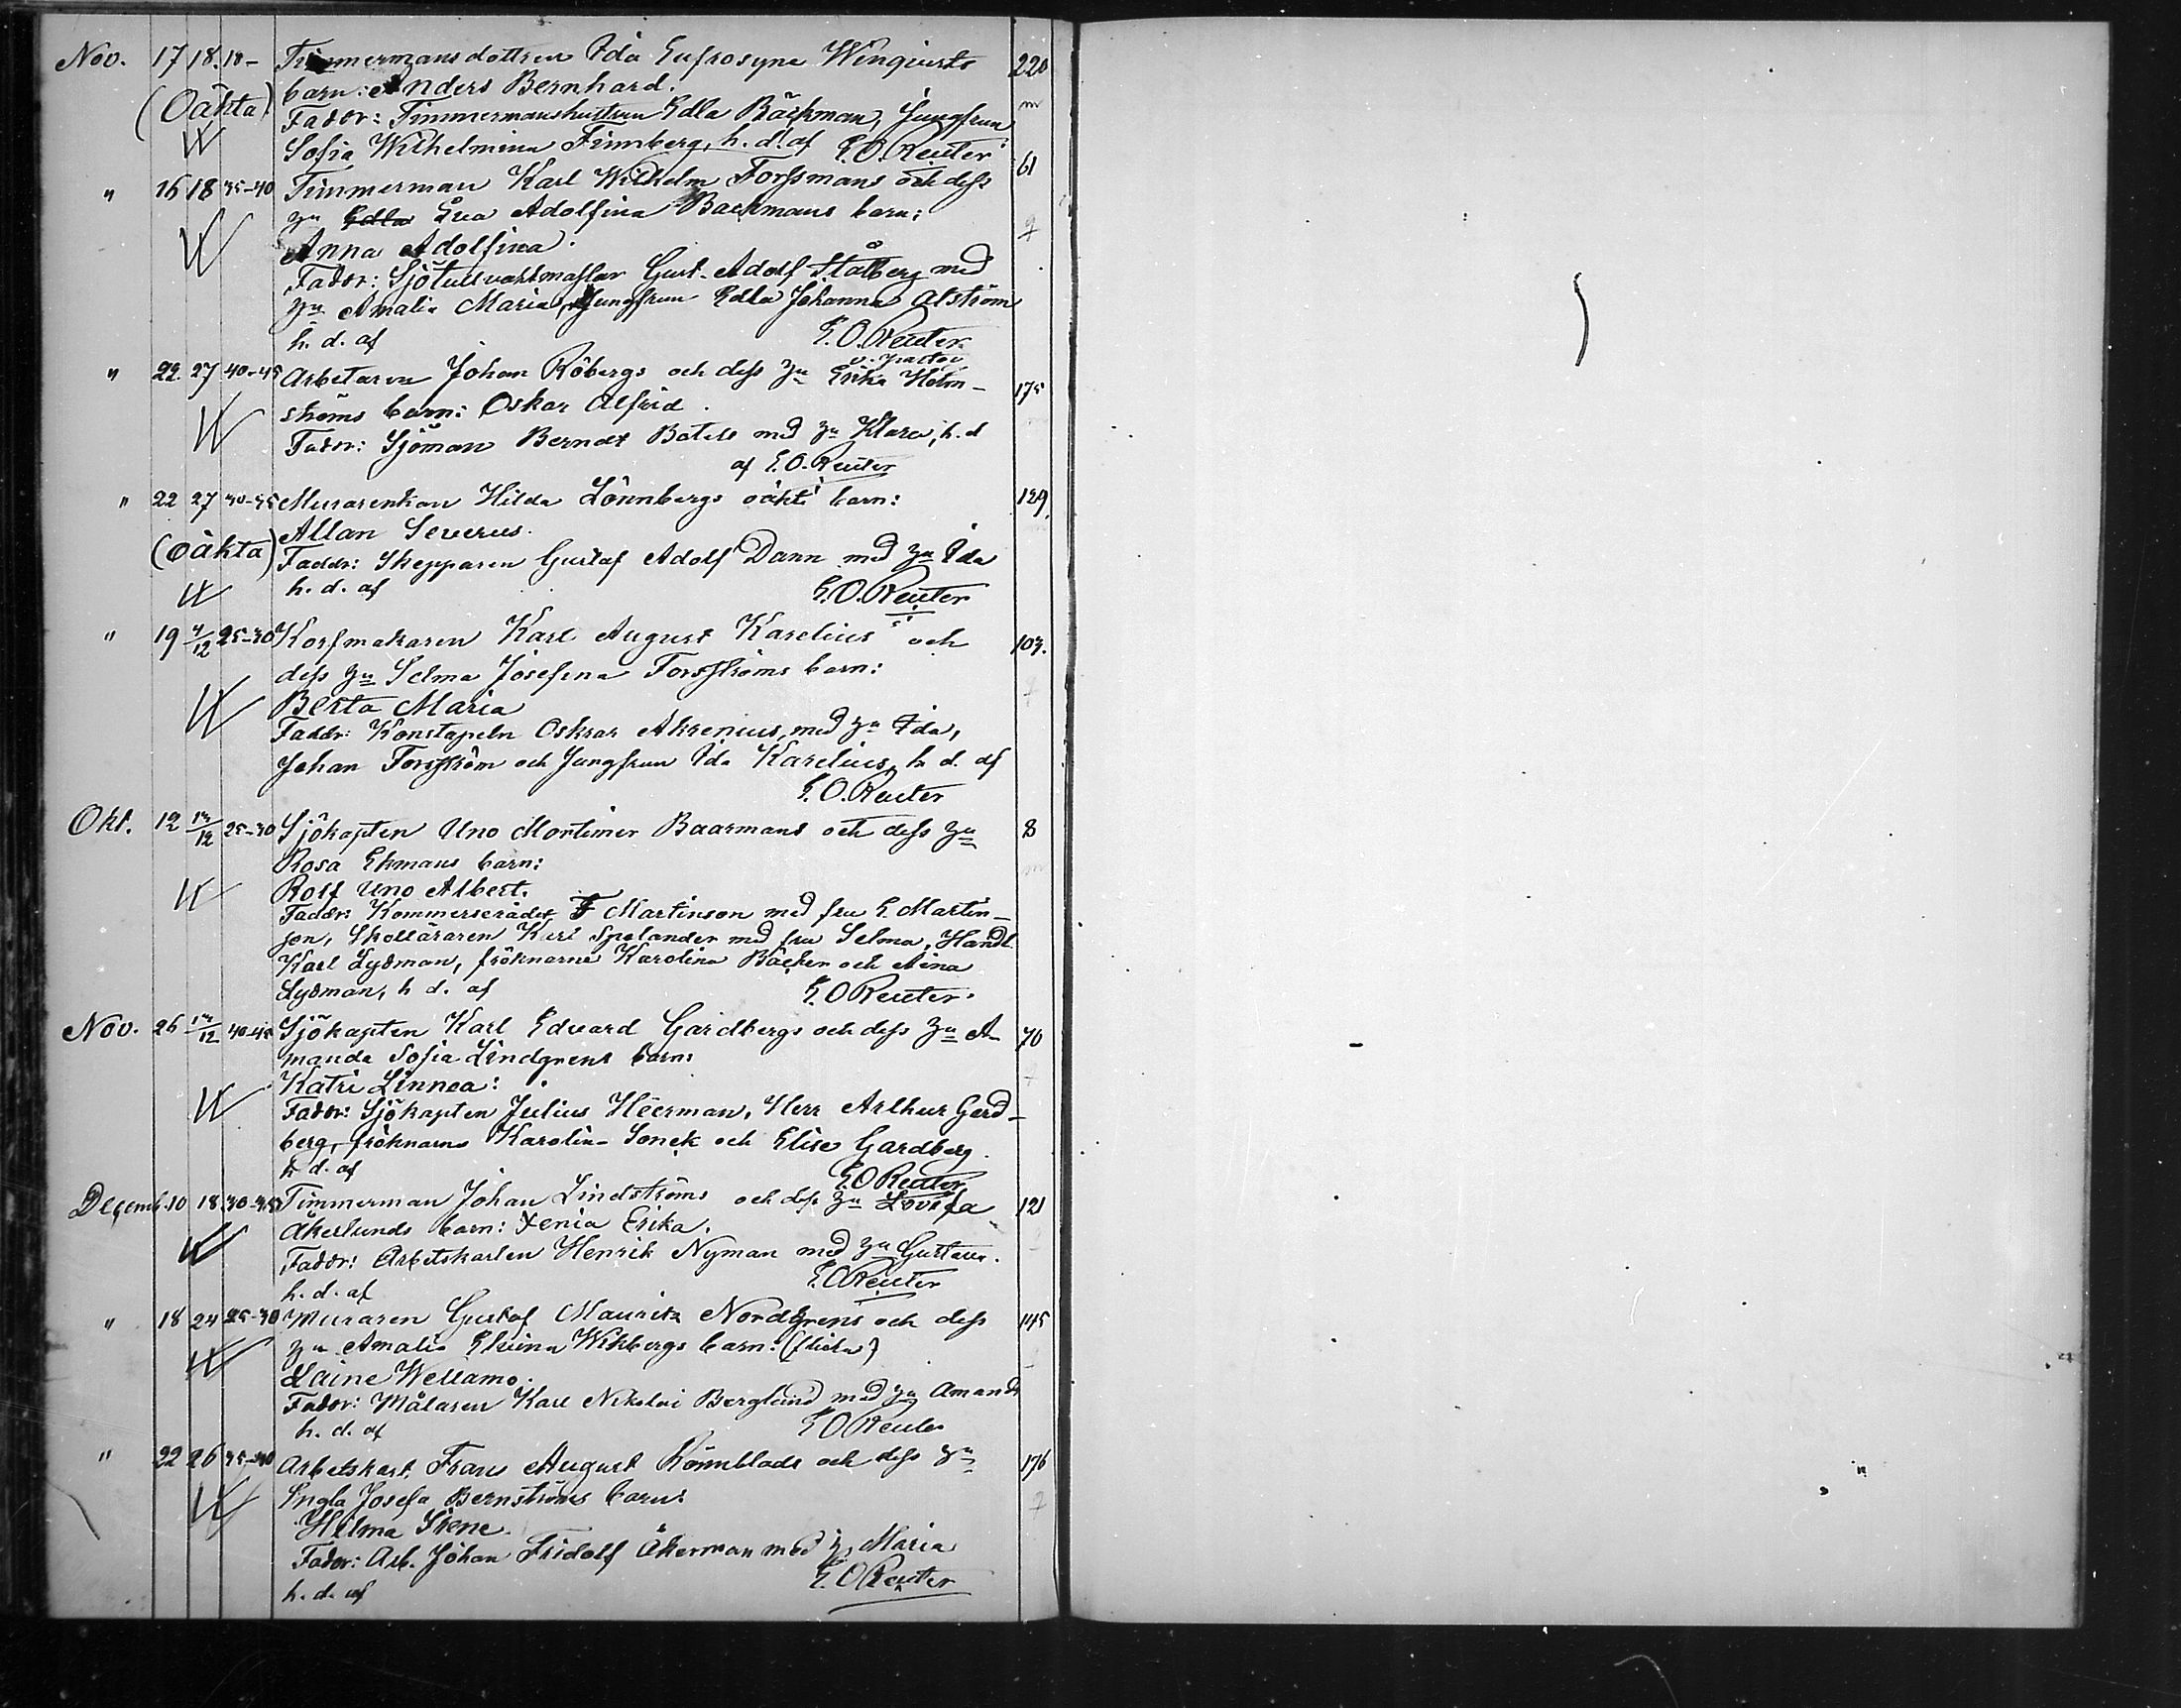 Nov. 17 18. 18- Timmermansdottren Ida Eufrosyne Winqvists 220
(Oäkta) barn: Anders Bernhard. m
Faddr: Timmermanshustrun Edla Bäckman, Jungfrun
Sofia Wilhelmina Finnberg, h. d. af E. O. Reuter
" 16 18 35-40 Timmerman Karl Wilhelm Forssmans och dess 61
hu Edla Eva Adolfina Backmans barn:
Anna Adolfina.
Faddr: Sjötullvaktmästar Gust. Adolf Stålberg med
hu Amalia Maria, Jungfrun Edla Johanna Alström
h. d. af E. O. Reuter
v. pastor
" 22. 27 40-45 Arbetaren Johan Röbergs och dess hu Erika Holm- 175
ströms barn: Oskar Alfrid.
Faddr: Sjöman Berndt Botels med hu Klara, h. d
af E. O. Reuter
" 22 27 Murarenkan Hilda Lönnbergs oäkta barn: 129.
Allan Severus.
(Oäkta) Faddr: Skepparen Gustaf Adolf Dann med hu Ida
h. d. af E. O. Reuter
" 19 4/12 25-30 Korfmakaren Karl August Karelius och 103.
dess hu Selma Josefina Forsströms barn:
Berta Maria
Faddr: Konstapeln Oskar Akrenius, med hu Ida,
Johan Forsström och Jungfrun Ida Karelius, h d. af
E. O. Reuter
Okt. 12 25-30 Sjökapten Uno Mortimer Baarmans och dess hu 8
Rosa Ekmans barn: m
Rolf Uno Albert.
Faddr: Kommerserådet F Martinson med fru E. Martin-
son, Skolläraren Karl Spelander med fru Selma, Handl.
Karl Lydman, fröknarne Karolina Bäcker och Aina
Lydman, h d. af E. O Reuter.
Nov. 26 40-45 Sjökapten Karl Edvard Gardbergs och dess hu A- 70
manda Sofia Lindgrens barn:
Katri Linnea:
Faddr: Sjökapten Julius Heerman, Herr Arthur Gard-
berg, fröknarna Karolin- Sonck och Elise Gardberg.
h d. af E. O Reuter
Decemb. 10 18. Timmerman Johan Lindströms och dess hu Lovisa 121
Åkerlunds barn: Xenia Erika.
Faddr: Arbetskarlen Henrik Nyman med hu Gustava.
h. d. af E. O Reuter
" 18 24 25-30 Muraren Gustaf Mauritz Nordgrens och dess 145
hu Amalia Elviina Wikbergs barn: (flicka)
Laine Wellamo.
Faddr: Målaren Karl Nikolai Berglund med hu Amanda
h. d. af E O Reuter
" 22 26 35-40 Arbetskarl. Frans August Rönnblads och dess hu 176
Engla Josefa Bernströms barn:
Hilma Irene.
Faddr: Arb. Johan Fridolf Åkerman med hu Maria
h. d. af E. O Reuter